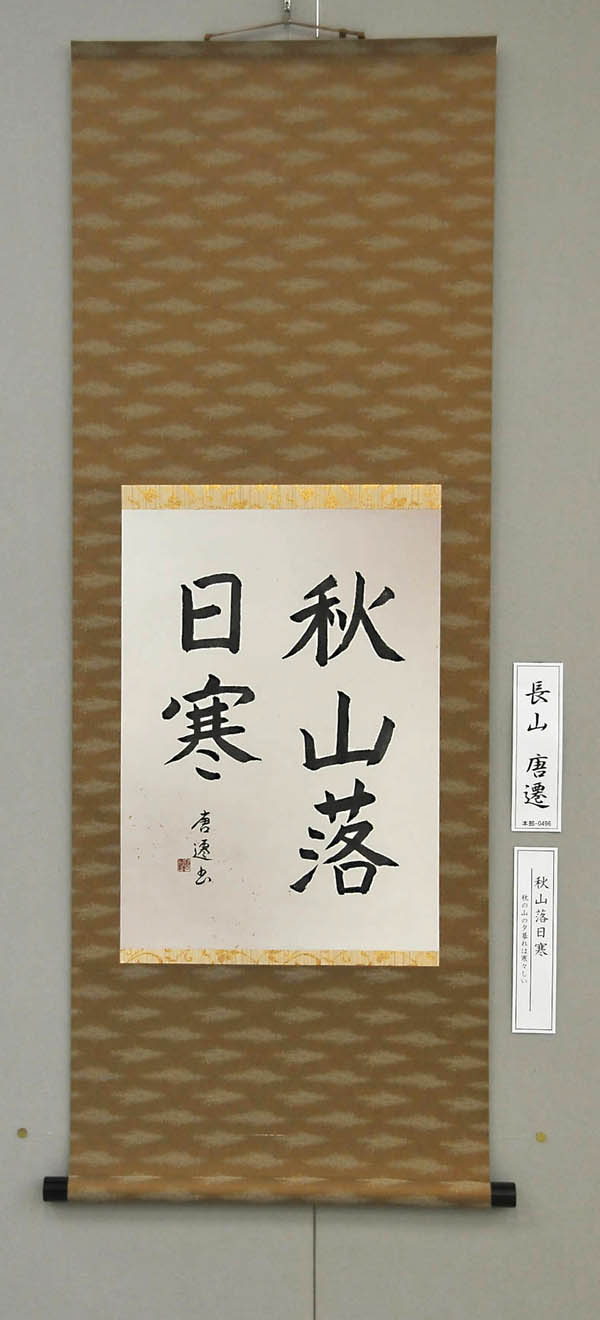 秋山落
日寒
唐遷書
長山 唐遷
本部-0496
秋山落日寒
秋の山の夕暮れは寒々しい